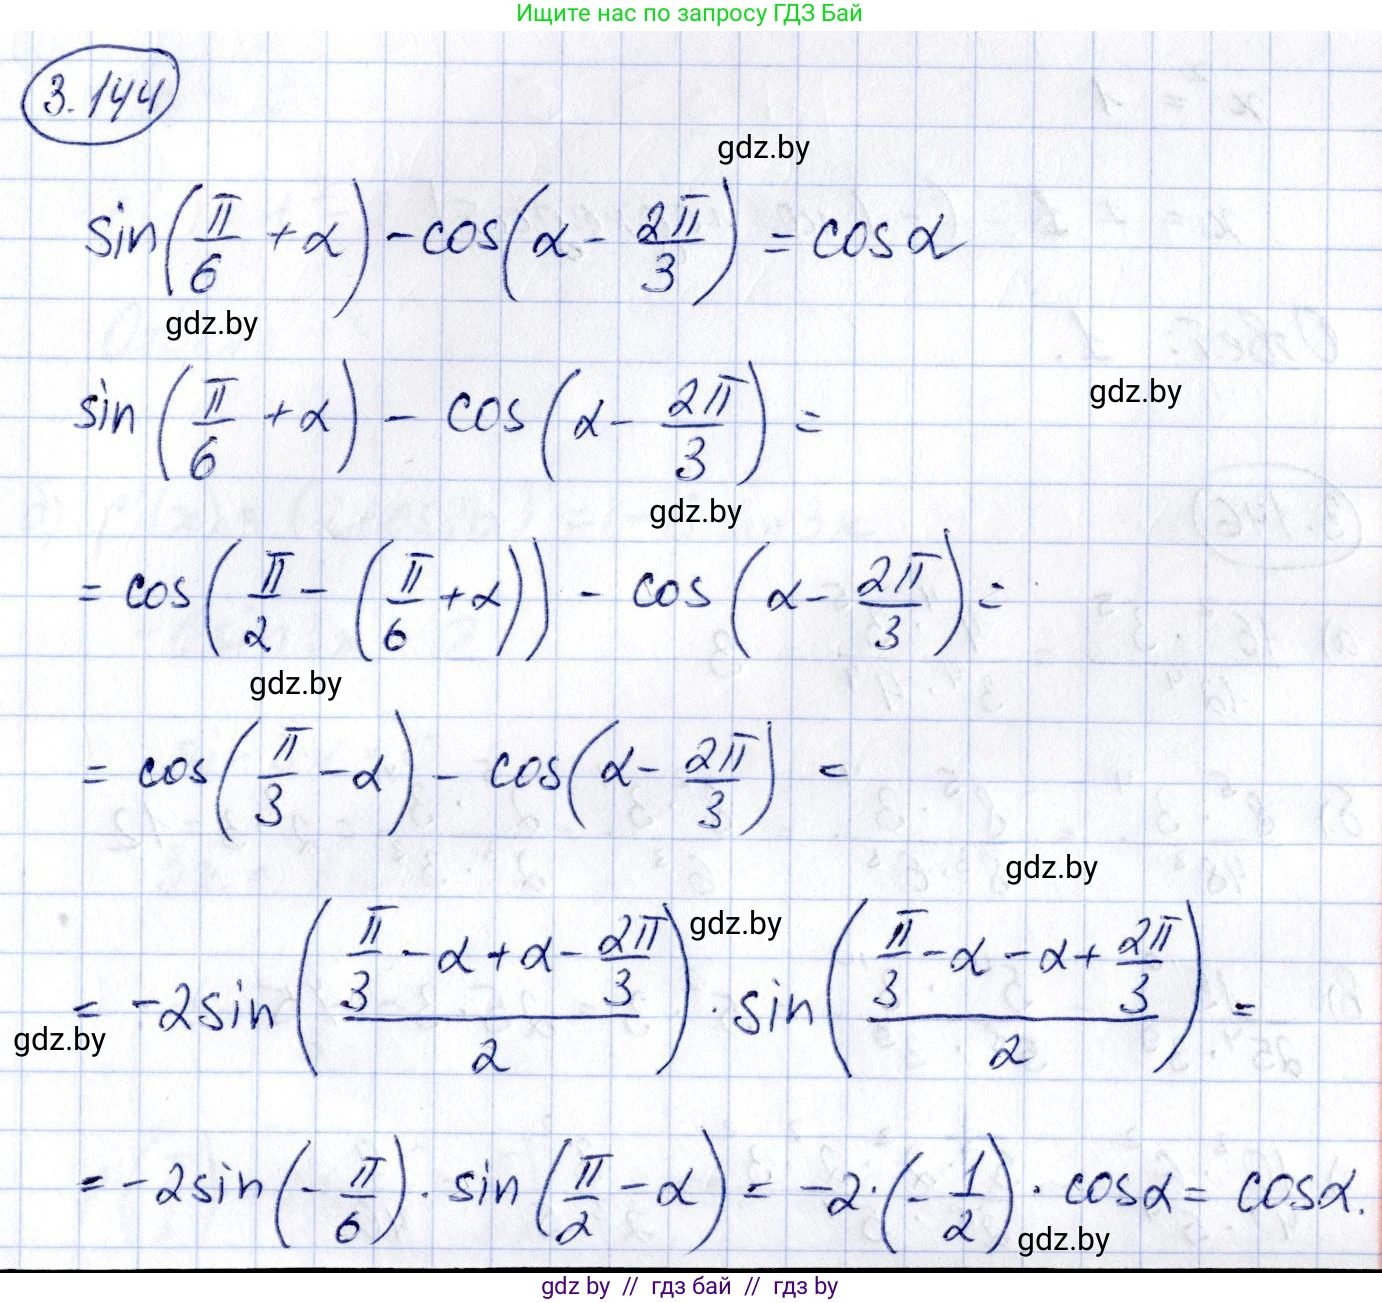 Ищите нас по запросу ГДЗ Бай
3.144
gdz.by
sin(π/6 + α) - cos(α - 2π/3) = cos α
gdz.by
sin(π/6 + α) - cos(α - 2π/3) =
gdz.by
gdz.by
= cos(π/2 - (π/6 + α)) - cos(α - 2π/3) =
gdz.by
= cos(π/3 - α) - cos(α - 2π/3) =
gdz.by
gdz.by
= -2sin((π/3 - α + α - 2π/3)/2) · sin((π/3 - α - α + 2π/3)/2) =
gdz.by
= -2sin(-π/6) · sin(π/2 - α) = -2·(-1/2) · cosα = cosα.
gdz.by
gdz by // гдз бай // гдз by